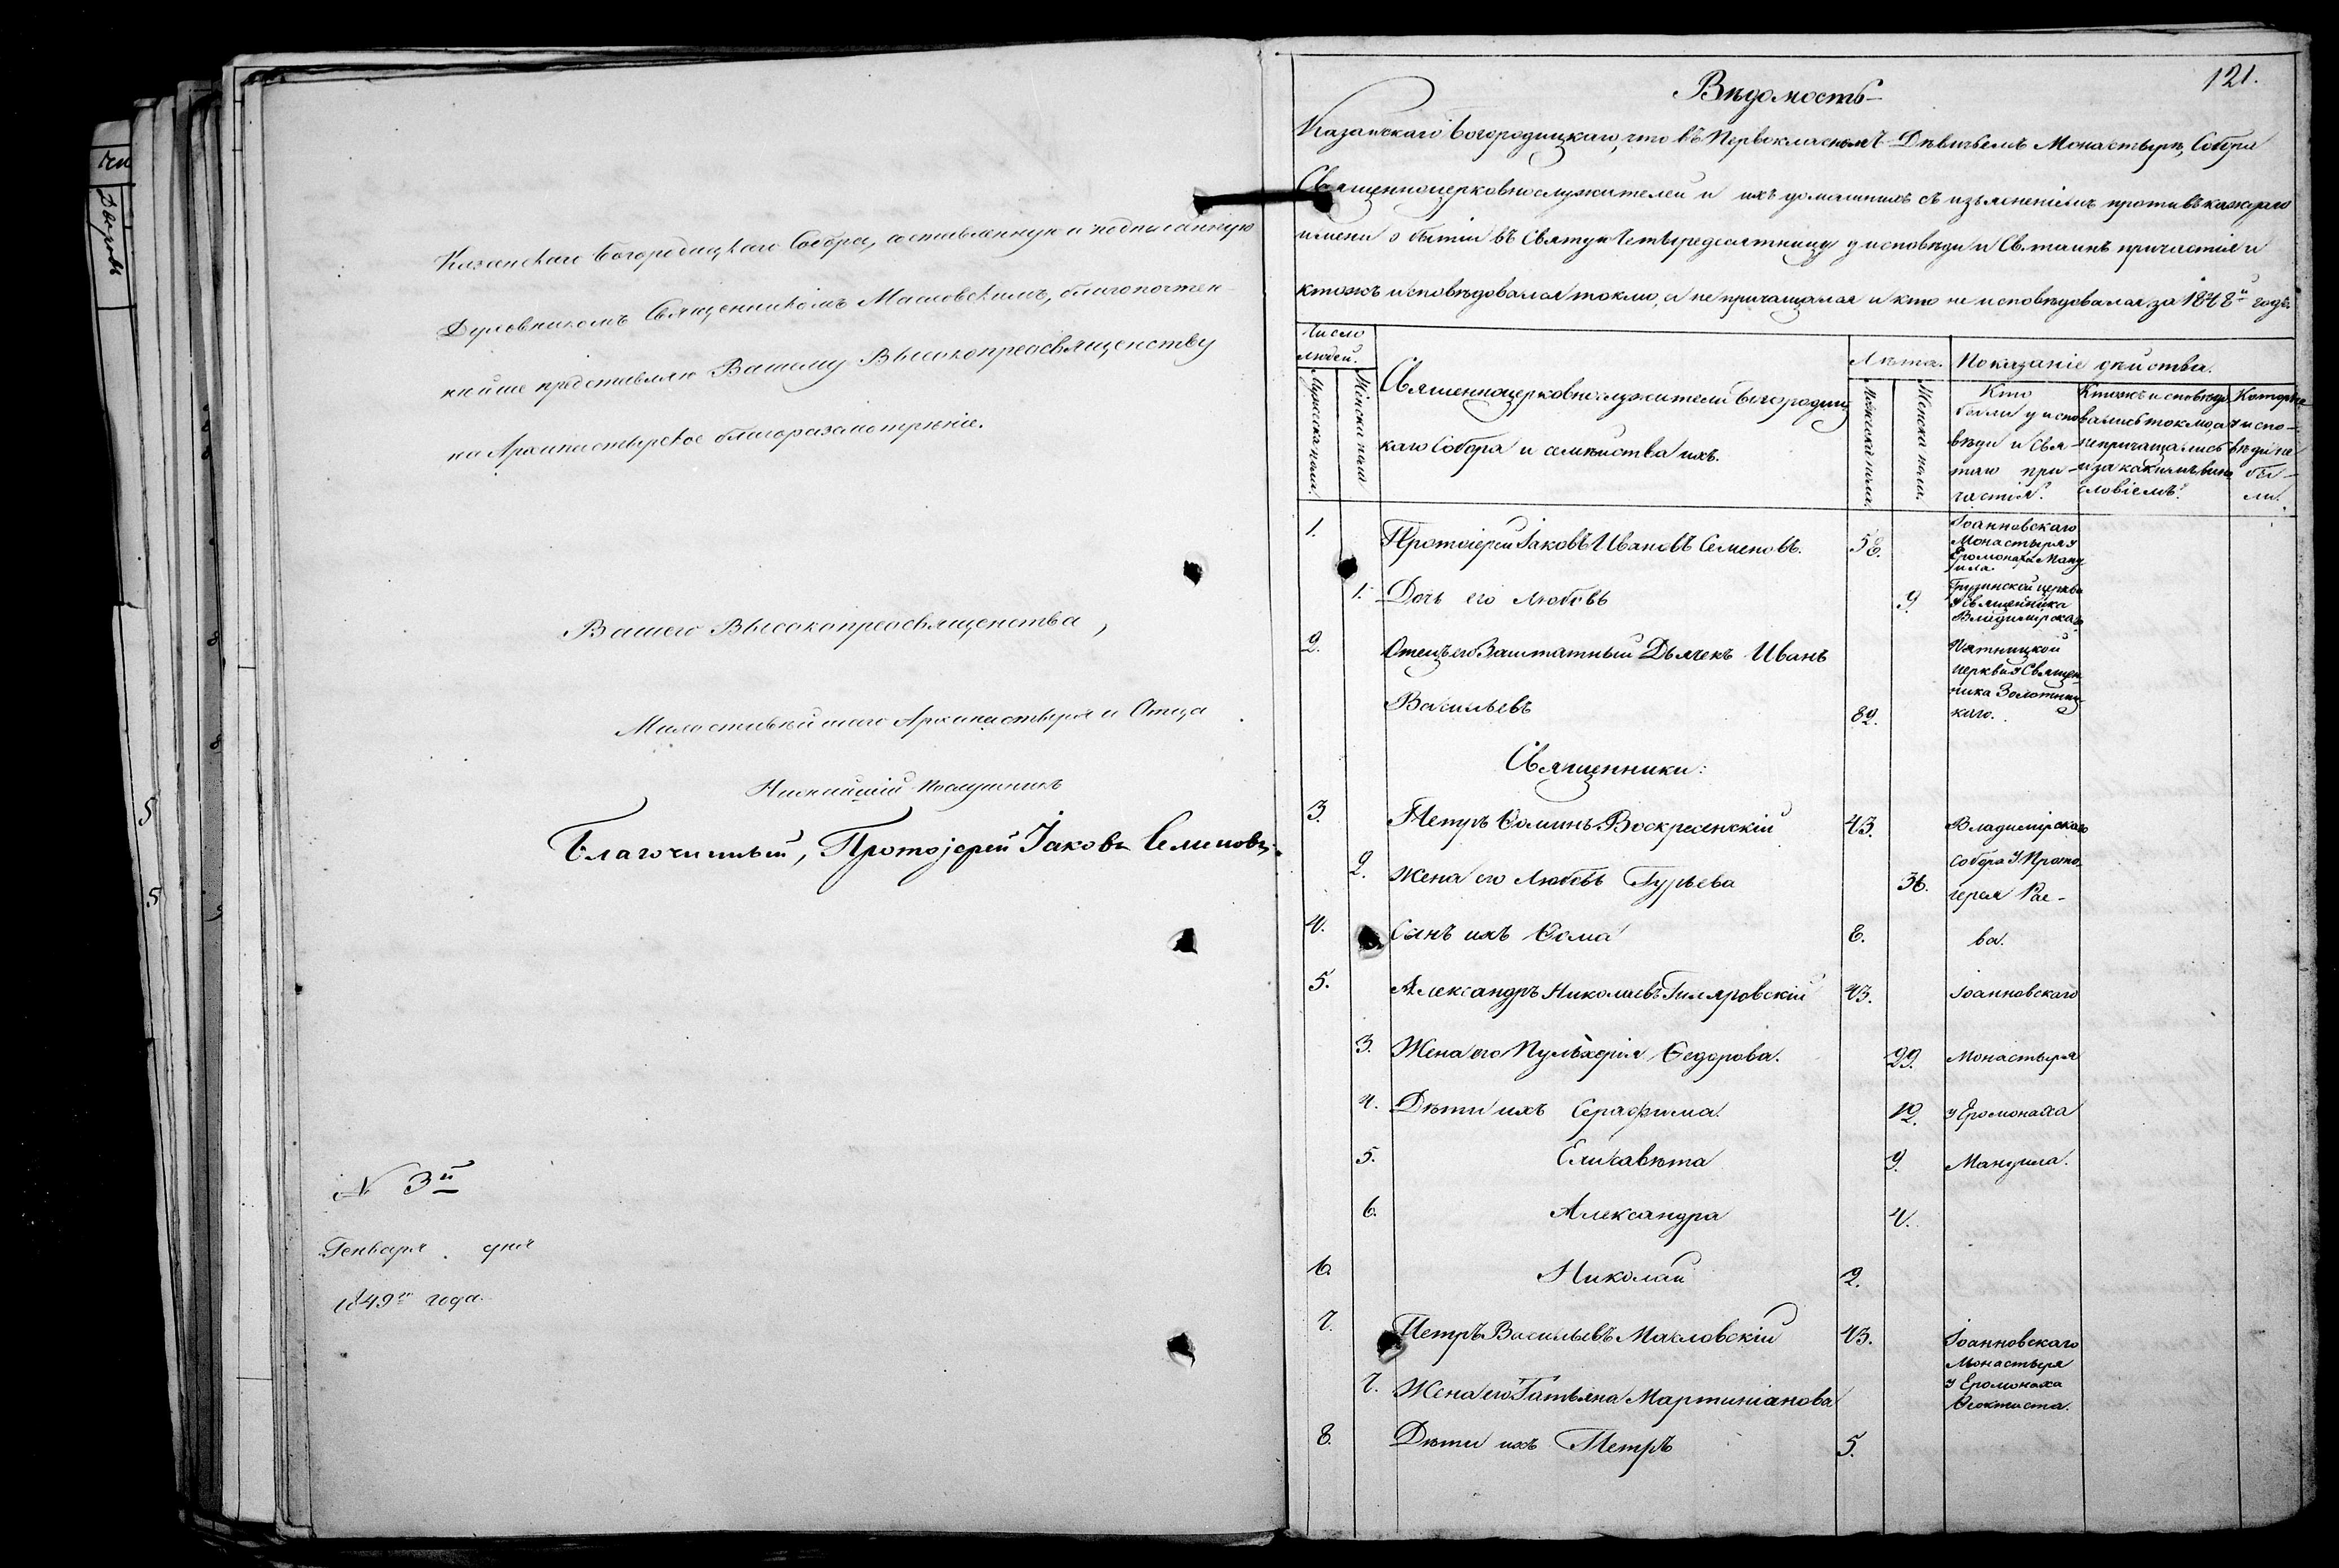 Казанскаго Богородицкаго Собора, составленную и подписанную
Духовникомъ Священникомъ Масловскимъ, благопочтен-
нѣйше представляю Вашему Высокопреосвященству
на Архипастырское благоразсмотрѣніе.
Вашего Высокопреосвященства,
Милостивѣйшаго Архипастыря и Отца
Нижайшій послушникъ
Благочинный, Протоіерей Іаковъ Семеновъ.
№ 3й
Генваря дня
1849го года.
121.
Вѣдомость
Казанскаго Богородицкаго, что въ Первоклассномъ Дѣвичьемъ Монастырѣ, Собора
Священноцерковнослужителей и ихъ домашнихъ съ изъясненіемъ противъ каждаго
имени о бытіи въ Святую Четыредесятницу у исповѣди и Св. таинъ причастія и
ктожъ исповѣдовался токмо, а не причащался и кто не исповѣдовался за 1848й годъ.
Число людей.
Мужеска пола.
Женска пола
Священноцерковнослужители Богородиц-
каго Собора и семейства ихъ.
Лѣта.
Мужеска пола.
Женска пола.
Показаніе дѣйства.
Кто были у испо-
вѣди и Свя-
таго при-
частія.
Ктожъ исповѣдо-
вались токмо, а
не причащались
и за какимъ вино-
словіемъ.
Которые
у испо-
вѣди не
бы-
ли.
1. Протоіерей Іаковъ Ивановъ Семеновъ. 58. Іоанновскаго
Монастыря у
Еромонаха Ману-
ила.
1. Дочь его Любовь 9. Грузинской церкви
у Священника
Владимірскаго
2. Отецъ его Заштатный Дьячекъ Иванъ
Васильевъ 82.
Пятницкой
церкви у Священ-
ника Золотниц-
каго.
Священники:
3. Петръ Ѳоминъ Воскресенскій 43. Владимірскаго
2. Жена его Любовь Гурьева 36. Собора у Прото-
іерея Рае-
4. Сынъ ихъ Ѳома 8. ва.
5. Александръ Николаевъ Гиляровскій 43. Іоанновскаго
3. Жена его Пульхерія Ѳедорова. 29. Монастыря
4. Дѣти ихъ Серафима. 12. у Еромонаха
5. Елисавѣта 9. Мануила.
6. Александра 4.
6. Николай 2.
7. Петръ Васильевъ Масловскій 43. Іоанновскаго
Монастыря
7. Жена его Татьяна Мартиніанова у Еромонаха
Ѳеоктиста.
8. Дѣти ихъ Петръ 5.